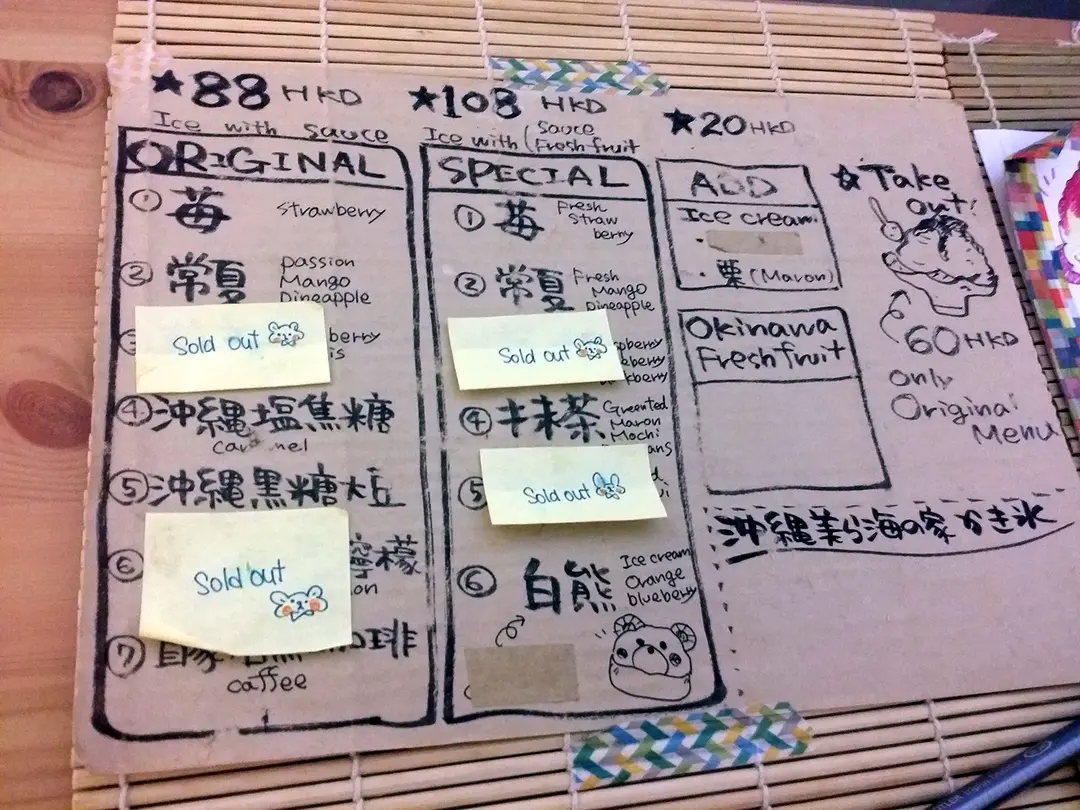 ★88 HKD
Ice with sauce
ORIGINAL
① 苺 strawberry
② 常夏 passion
Mango
pineapple
Sold out
berry
④ 沖縄塩焦糖
⑤ 沖縄黒糖大豆
⑥ 檬
Sold out
on
⑦ 自家
琲
coffee
★108 HKD
Ice with (Sauce
Fresh fruit
SPECIAL
① 苺 Fresh
Straw
berry
② 常夏 Fresh
Mango
pineapple
Sold out
spberry
eberry
kberry
④ 抹茶 Greented
Maron
Mochi
ans
⑤ Sold out
⑥ 白熊 Ice cream
Orange
blueberry
★20 HKD
ADD
Ice cream
・
・栗 (Maron)
Okinawa
Fresh fruit
☆Take
out!
60 HKD
only
Original
Menu
沖縄美ら海の家 かき氷